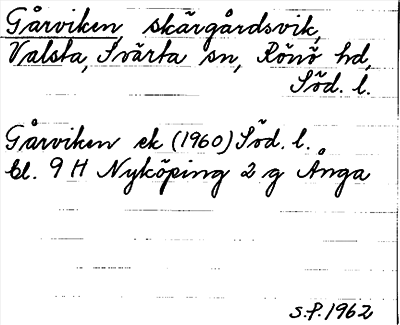 Gårviken, skärgårdsvik,
Valsta, Svärta sn, Rönö hd,
Söd. l.
Gårviken ek (1960) Söd. l.
bl. 9 H Nyköping 2 g Ånga
S.P. 1962